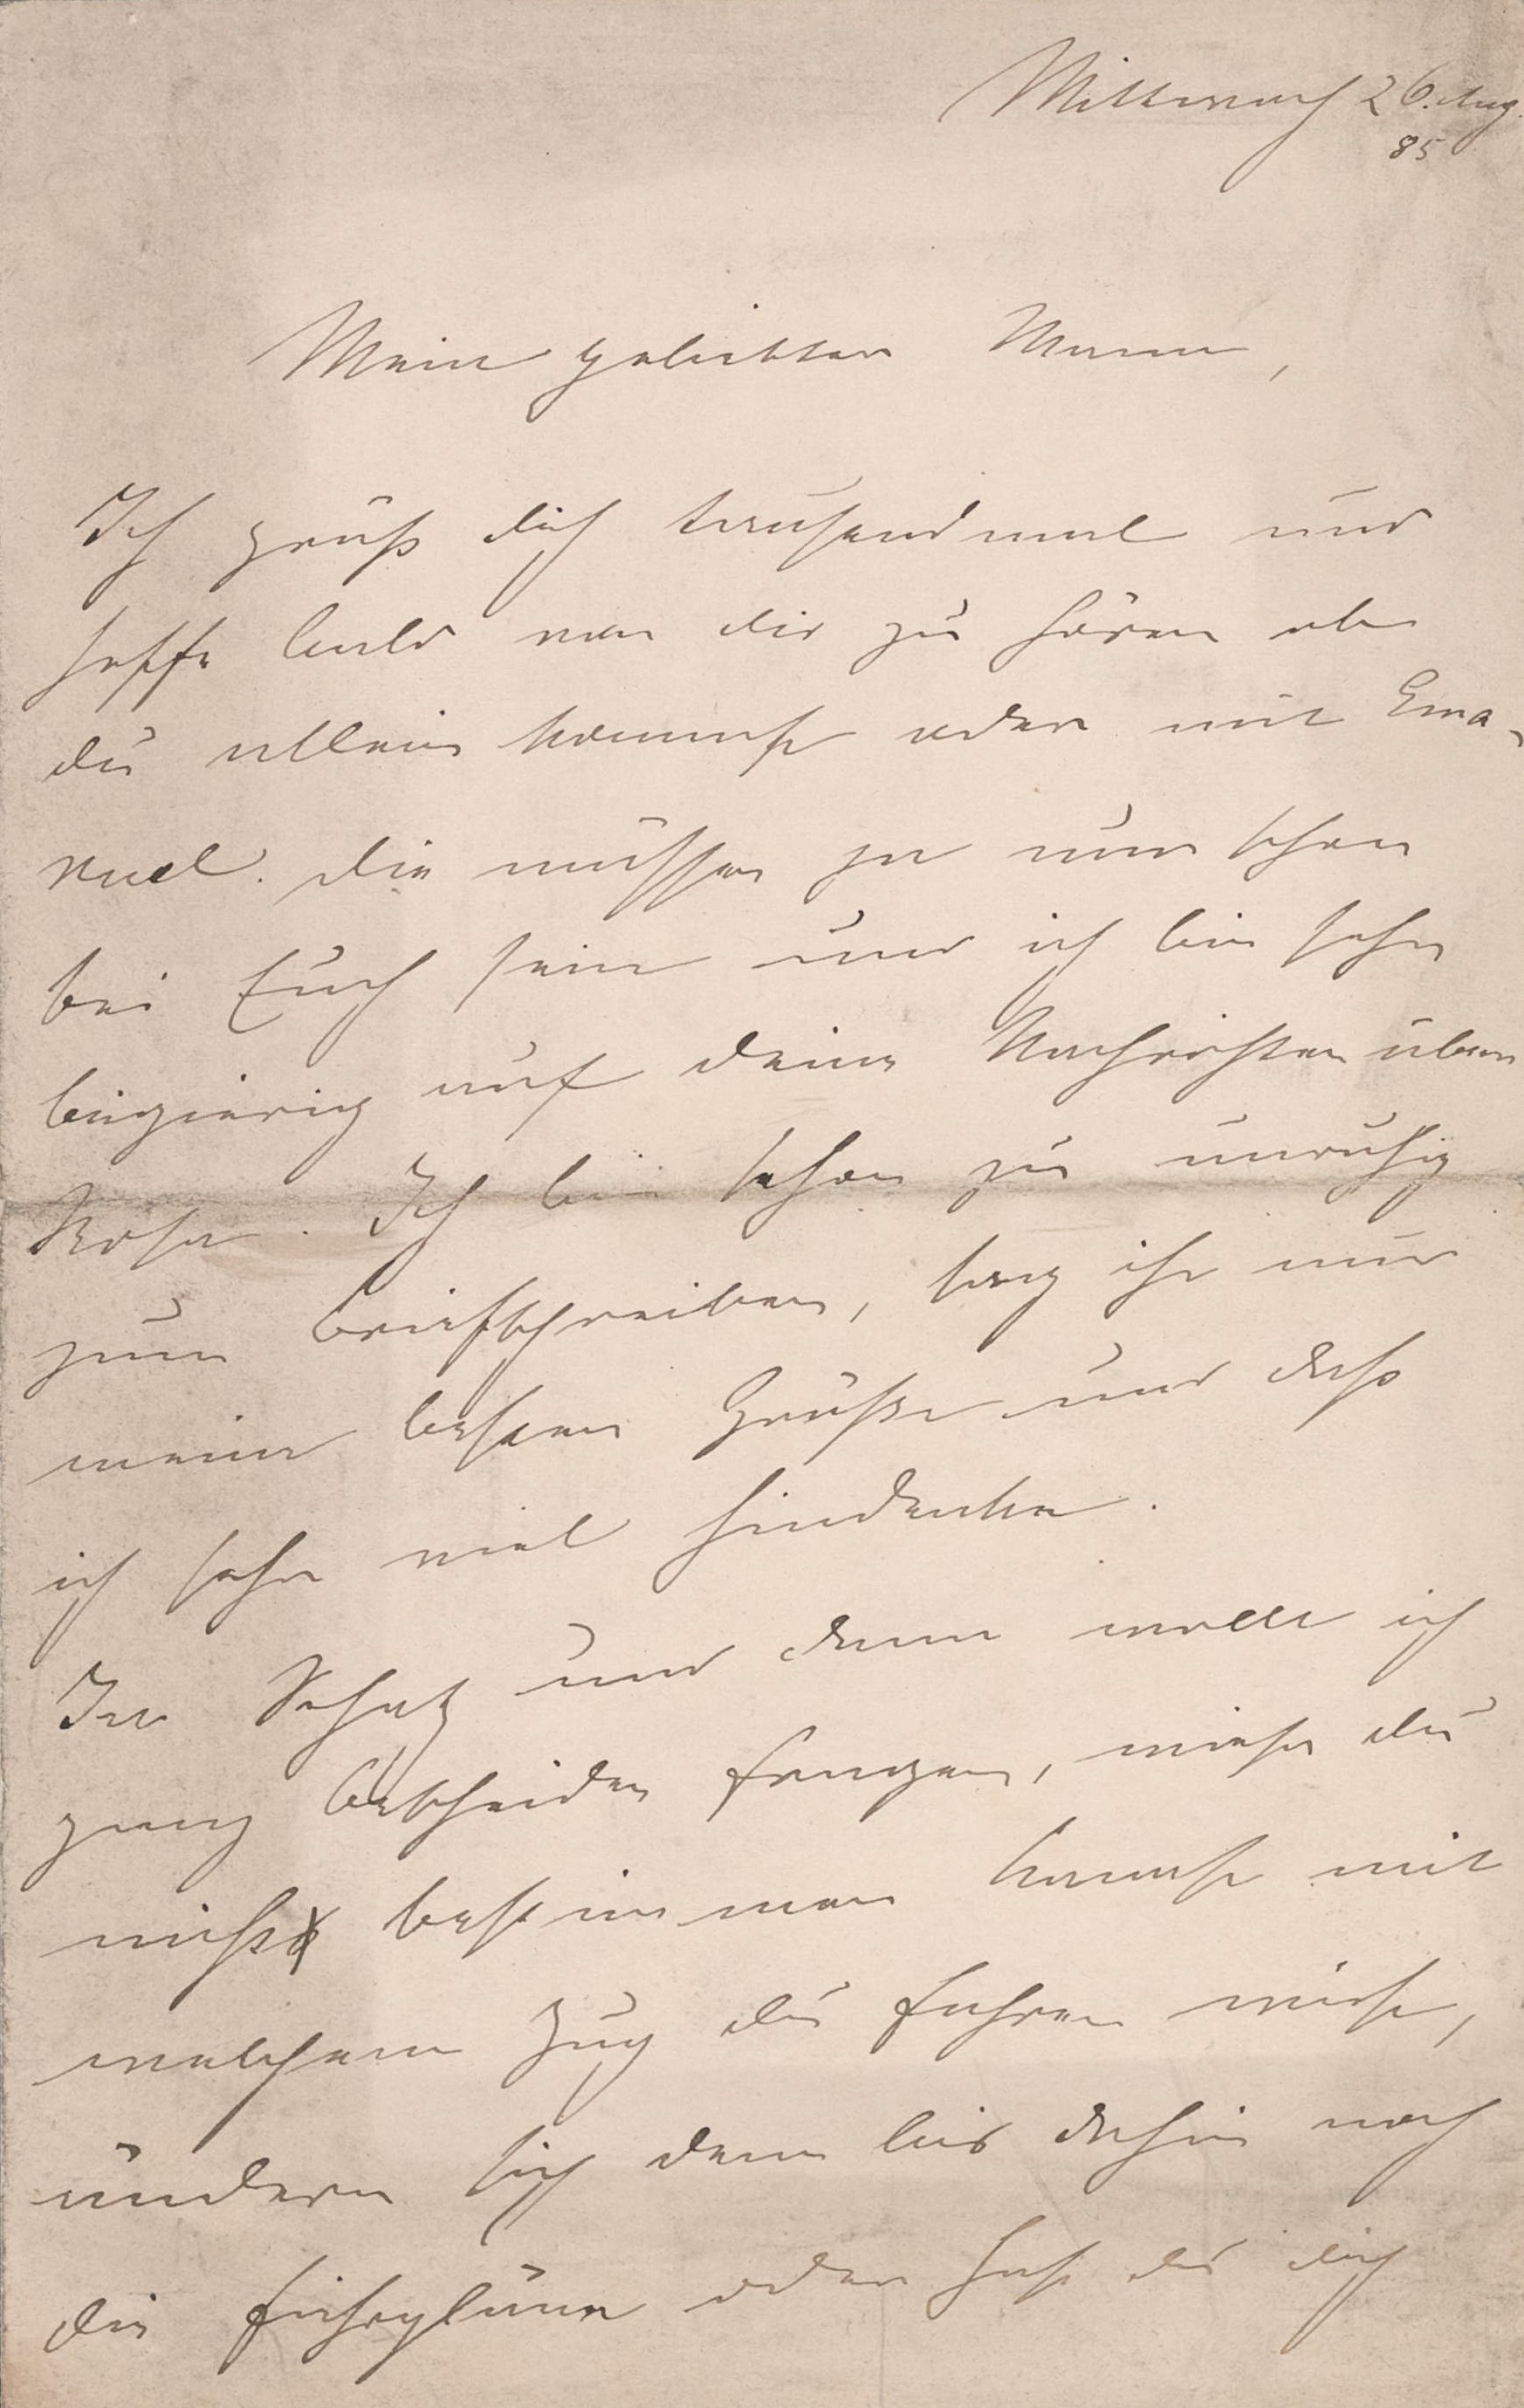 Mittwoch 26. Aug.
85
Mein geliebter Mann,
Ich grüß dich tausendmal und
hoffe bald von dir zu hören ob
du allein kommst oder mit Ema-
nuel. Die müssen ja nun schon
bei Euch sein und ich bin sehr
begierig auf deine Nachrichten über
Rosa. Ich bin schon zu unruhig
zum briefschreiben, sag ihr nur
meine besten Grüße und daß
ich sehr viel hindenke.
Ja Schatz und dann wollt ich
ganz bescheiden fragen, wieso du
nicht bestimmen kannst mit
welchem Zug du fahren wirst,
ändern sich denn bis dahin noch
die Fahrpläne oder hast du dich